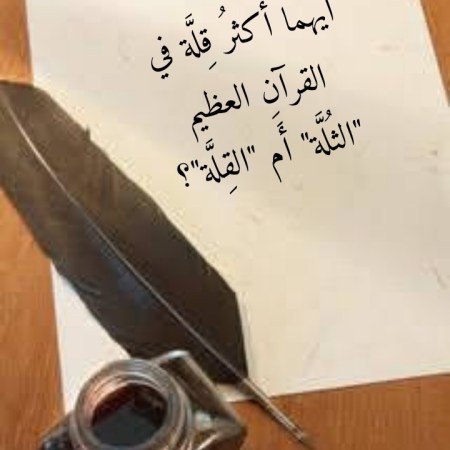 أيهما أكثرُ قِلةً في
القرآنِ العظيم
"الثُلَّة" أَم "القِلَّة"؟